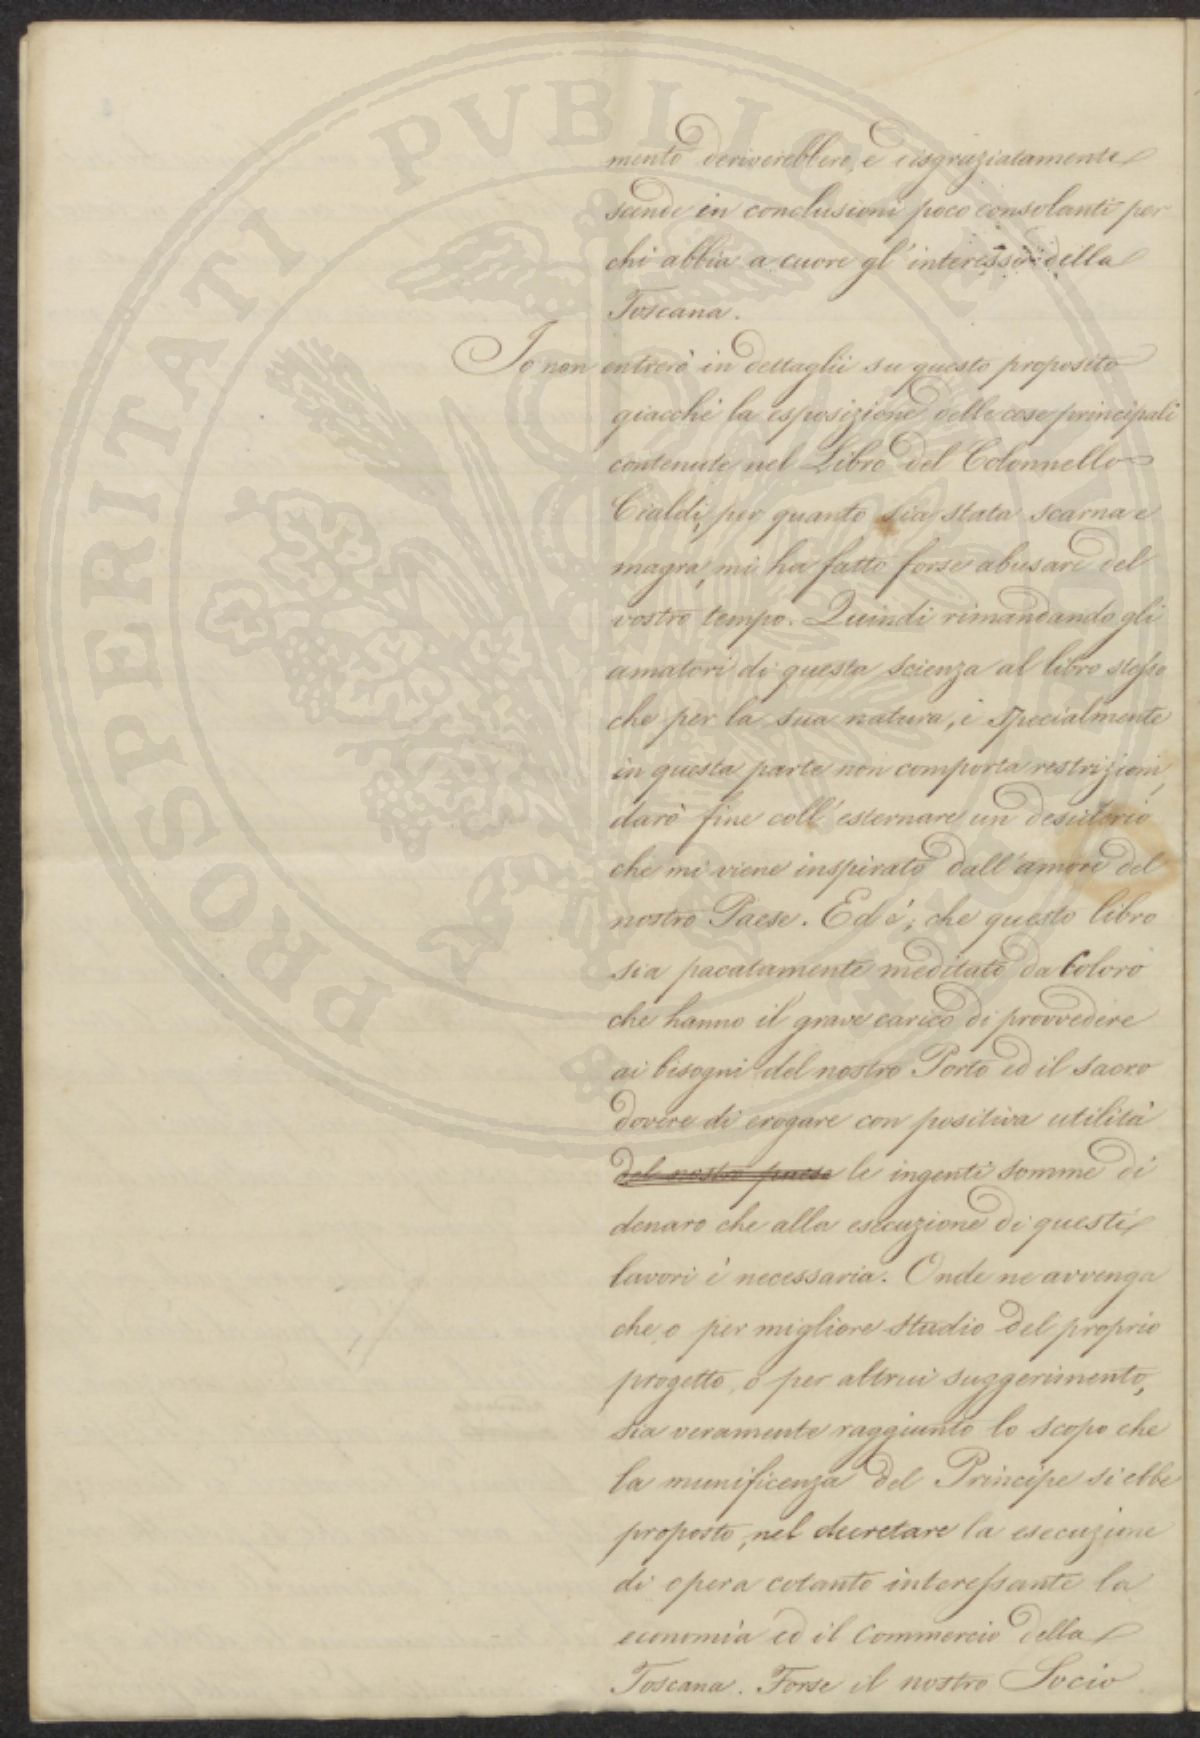 mento deriverebbero, e disgraziatamente
scende in conclusioni poco consolanti per
chi abbia a cuore gl'interessi della
Toscana.
Io non entrerò in dettaglii su questo proposito
giacchè la esposizione delle cose principali
contenute nel Libro del Colonnello
Cialdi, per quanto sia stata scarna e
magra, mi ha fatto forse abusare del
vostro tempo. Quindi rimandando gli
amatori di questa scienza al libro stesso
che per la sua natura, e specialmente
in questa parte non comporta restrizioni,
darò fine coll'esternare un desiderio
che mi viene inspirato dall'amore del
nostro Paese. Ed è, che questo libro
sia pacatamente meditato da Coloro
che hanno il grave carico di provvedere
ai bisogni del nostro Porto ed il sacro
dovere di erogare con positiva utilità
del nostro paese le ingenti somme di
denaro che alla esecuzione di questi
lavori è necessaria. Onde ne avvenga
che o per migliore studio del proprio
progetto, o per altrui suggerimento,
sia veramente raggiunto lo scopo che
la munificenza del Principe si ebbe
proposto, nel decretare la esecuzione
di opera cotanto interessante la
economia ed il Commercio della
Toscana. Forse il nostro Socio
PROSPERITATI PVBLICAE